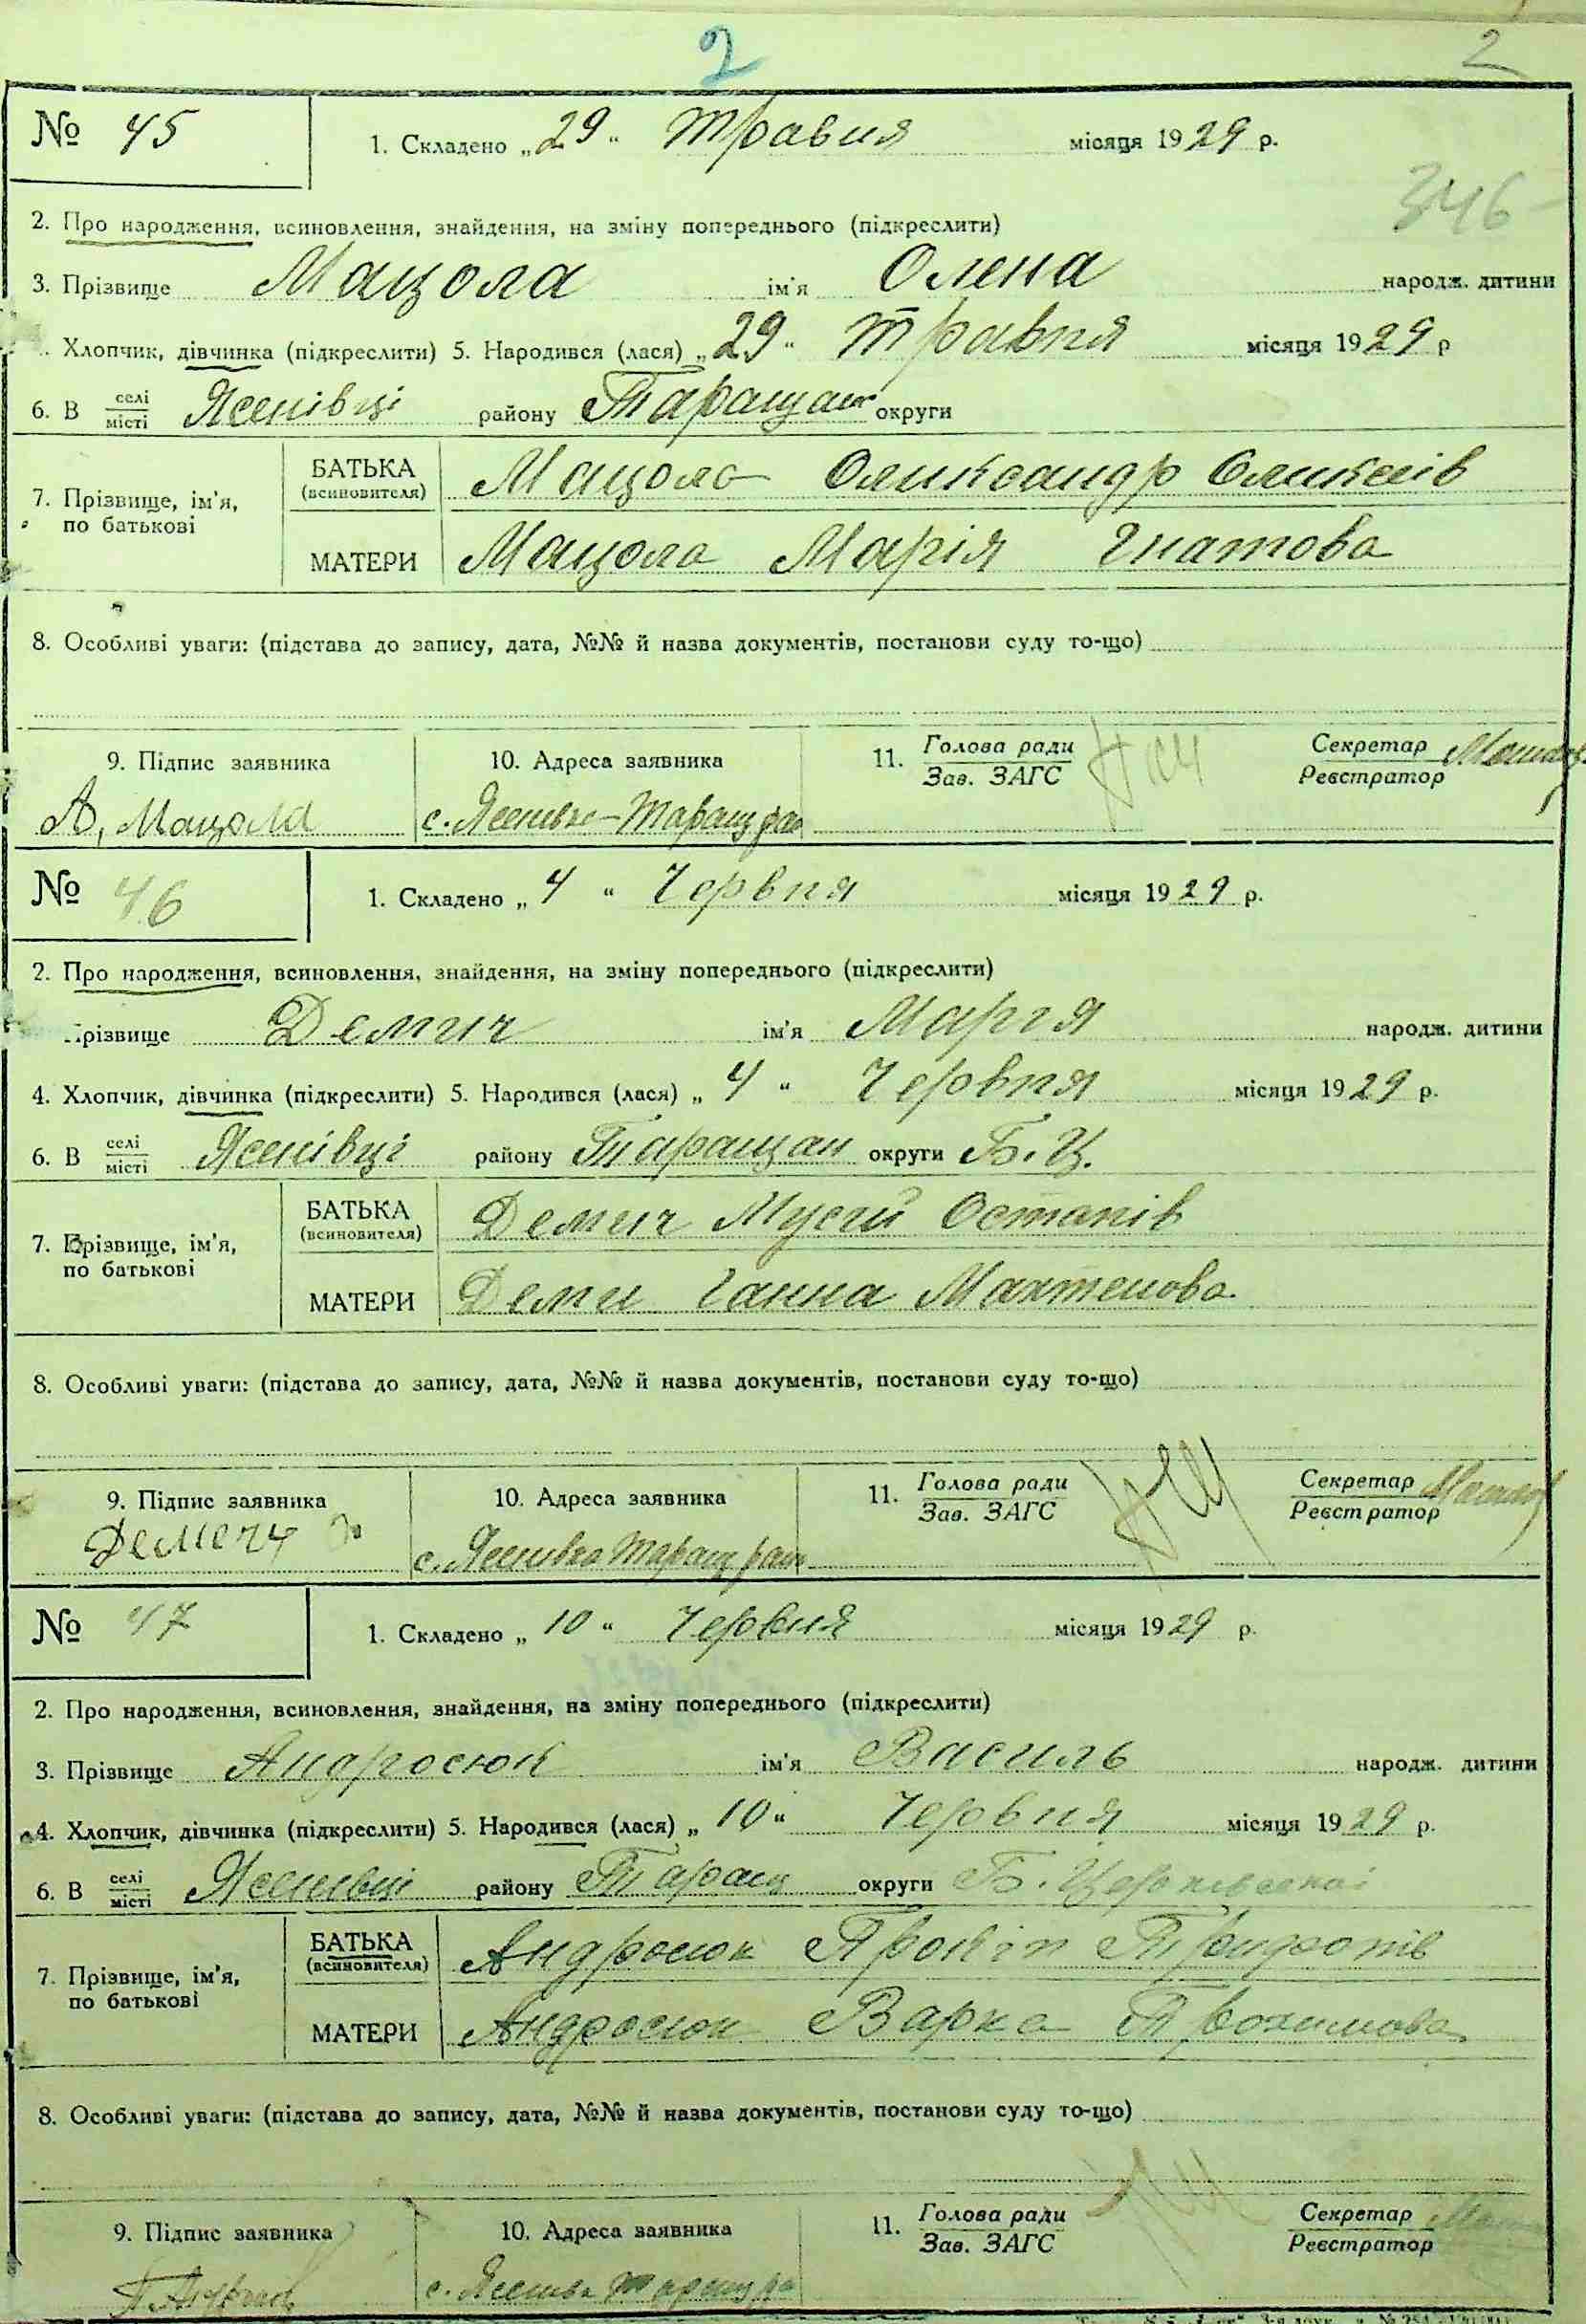 2
2
№ 45 1. Складено „29“ Травня місяця 1929 р.
346
2. Про народження, всиновлення, знайдення, на зміну попереднього (підкреслити)
3. Прізвище Мацола ім'я Олена народж. дитини
Хлопчик, дівчинка (підкреслити) 5. Народився (лася) „29“ Травня місяця 1929 р
6. В селі/місті Ясенівці району Таращан округи
7. Прізвище, ім'я, по батькові
БАТЬКА (всиновителя) Мацола Олександр Олексіїв
МАТЕРИ Мацола Марія Гнатова
8. Особливі уваги: (підстава до запису, дата, №№ й назва документів, постанови суду то-що)
9. Підпис заявника 10. Адреса заявника 11. Голова ради/Зав. ЗАГС Секретар/Реєстратор
А. Мацола с. Ясенівка-Таращ рай
№ 46 1. Складено „4“ Червня місяця 1929 р.
2. Про народження, всиновлення, знайдення, на зміну попереднього (підкреслити)
Прізвище Демич ім'я Марія народж. дитини
4. Хлопчик, дівчинка (підкреслити) 5. Народився (лася) „4“ Червня місяця 1929 р.
6. В селі/місті Ясенівці району Таращан округи Б.Ц.
7. Прізвище, ім'я, по батькові
БАТЬКА (всиновителя) Демич Мусій Остапів
МАТЕРИ Деми Ганна Мактенова
8. Особливі уваги: (підстава до запису, дата, №№ й назва документів, постанови суду то-що)
9. Підпис заявника 10. Адреса заявника 11. Голова ради/Зав. ЗАГС Секретар/Реєстратор
с. Ясенівка Таращ рай
№ 47 1. Складено „10“ Червня місяця 1929 р.
2. Про народження, всиновлення, знайдення, на зміну попереднього (підкреслити)
3. Прізвище Андросюк ім'я Василь народж. дитини
4. Хлопчик, дівчинка (підкреслити) 5. Народився (лася) „10“ Червня місяця 1929 р.
6. В селі/місті Ясенівці району Таращ округи Б. Церківської
7. Прізвище, ім'я, по батькові
БАТЬКА (всиновителя) Андросюк Прокіп Трифонів
МАТЕРИ Андросюк Варка
8. Особливі уваги: (підстава до запису, дата, №№ й назва документів, постанови суду то-що)
9. Підпис заявника 10. Адреса заявника 11. Голова ради/Зав. ЗАГС Секретар/Реєстратор